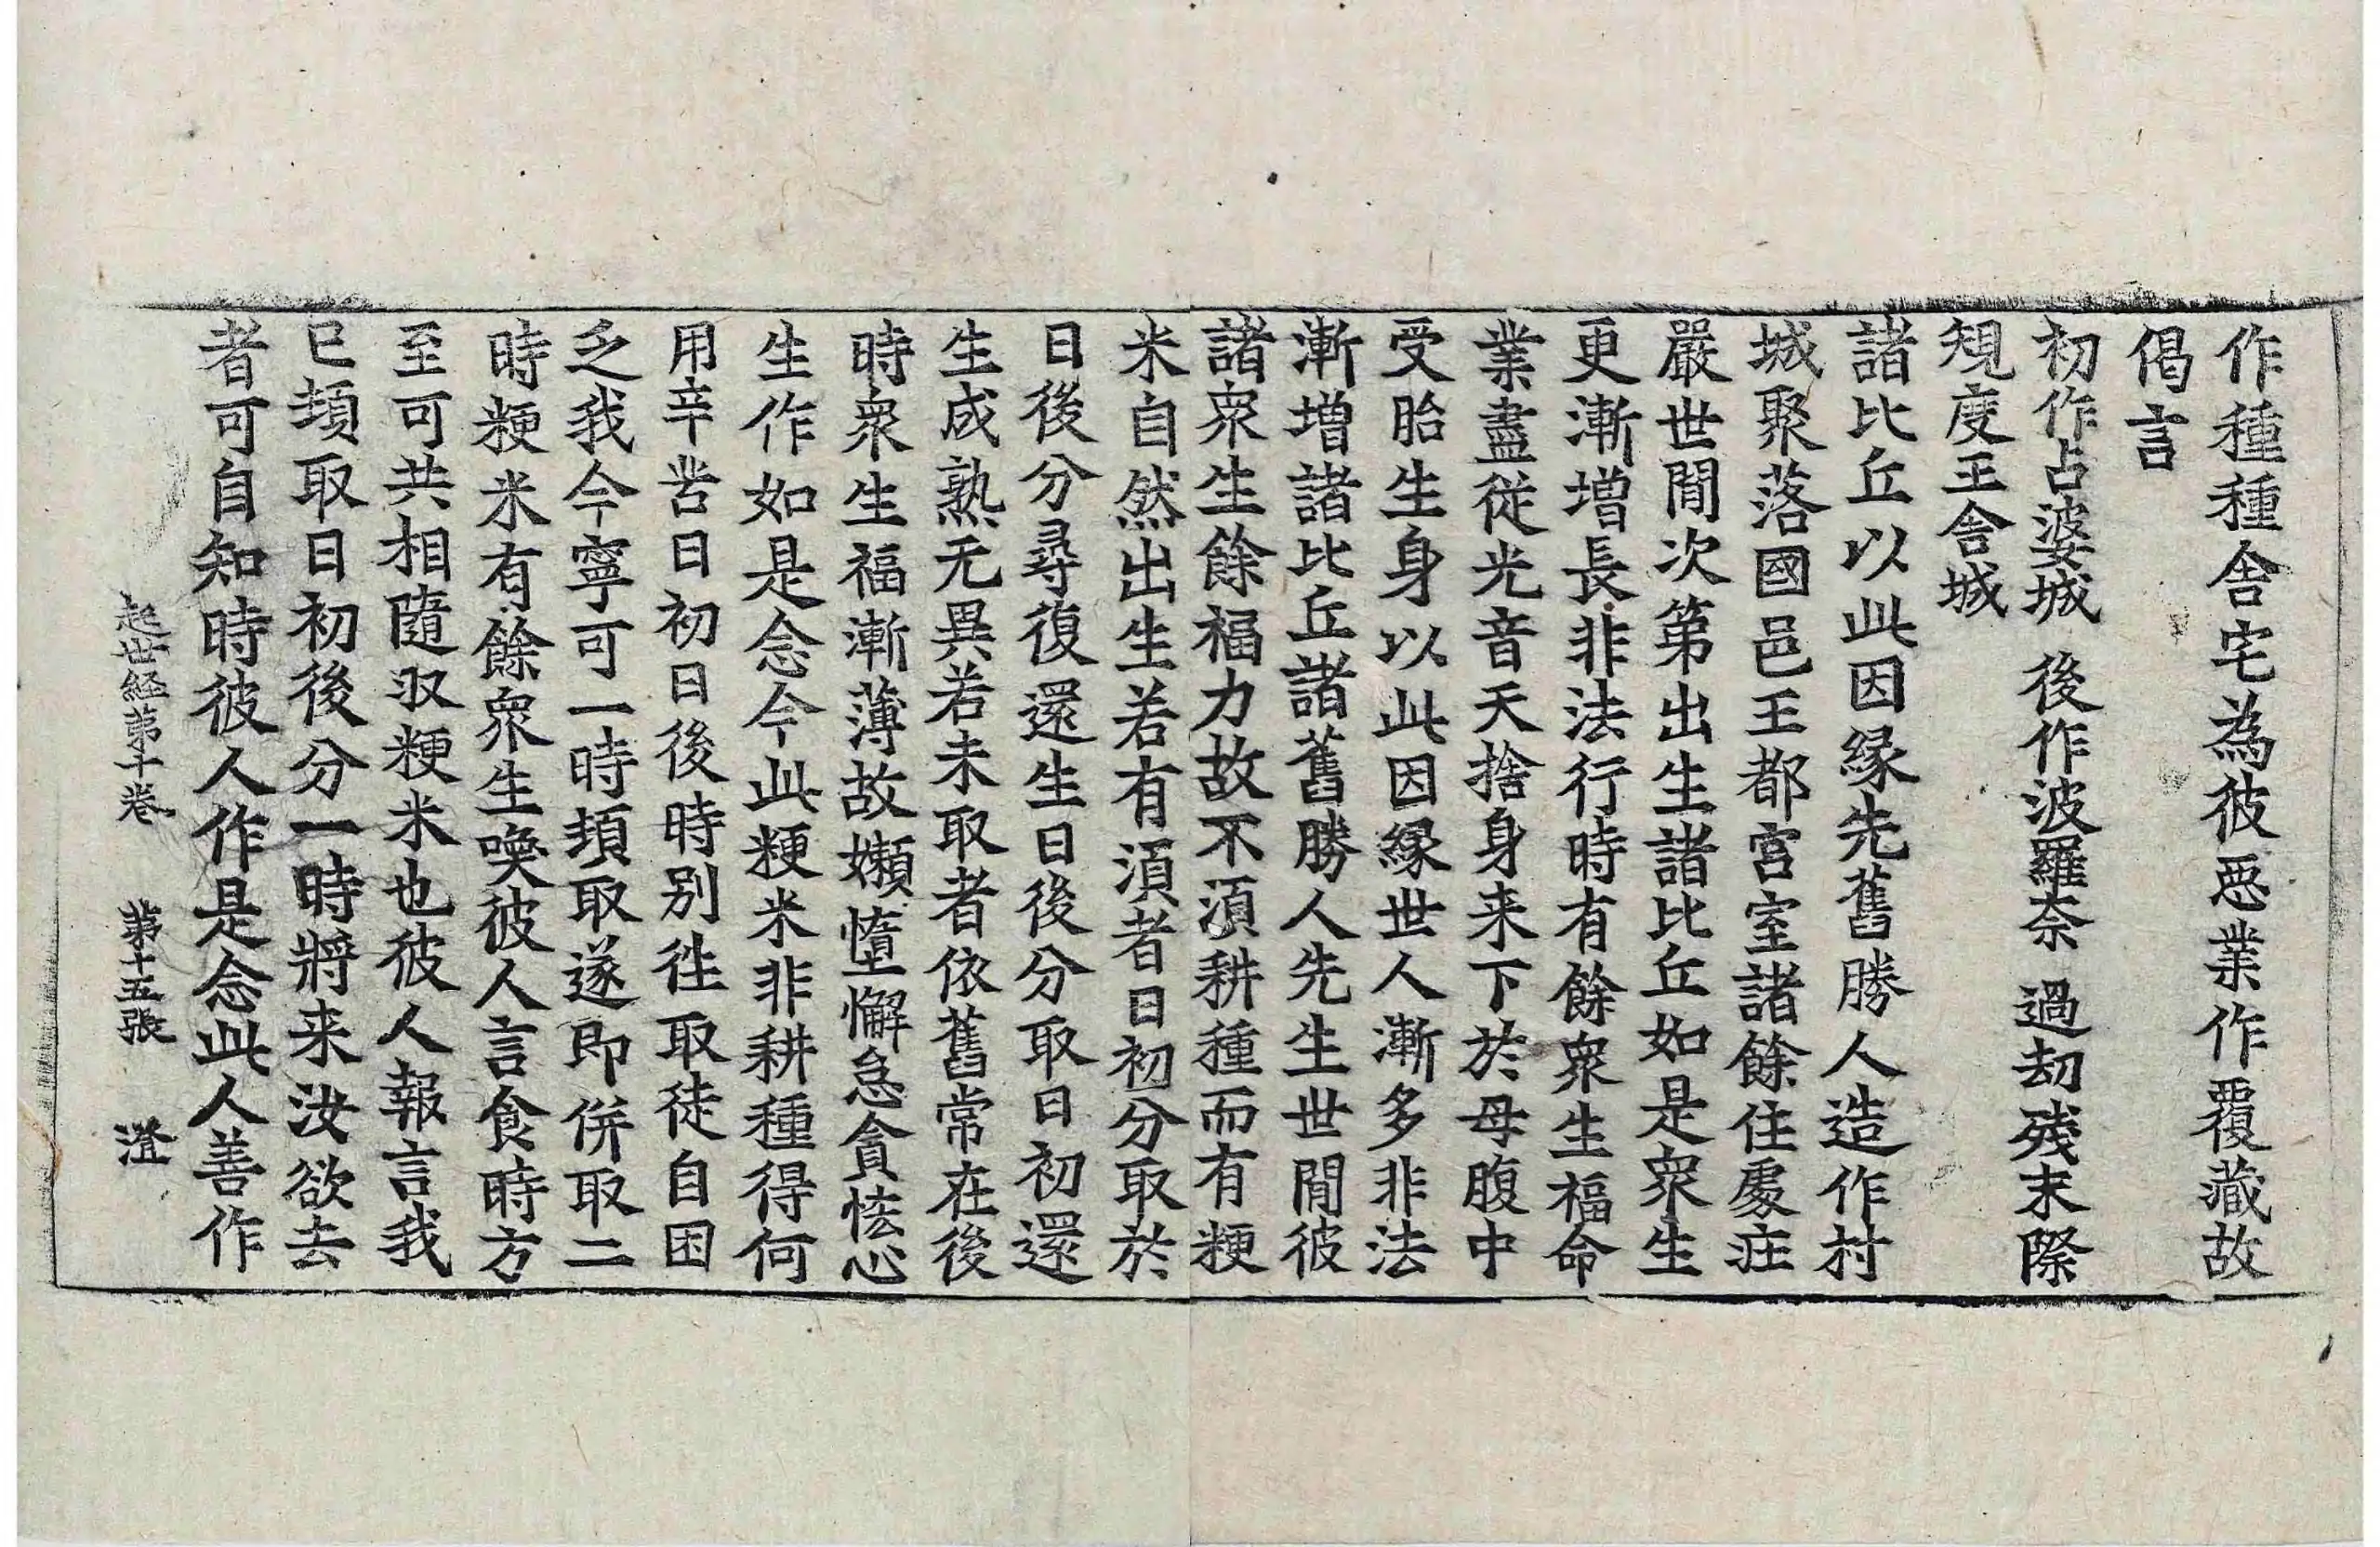 作種種舍宅為彼惡業作覆藏故
偈言
初作占婆城 後作波羅奈 過劫殘末際
規度王舍城
諸比丘以此因緣先舊勝人造作村
城聚落國邑王都宮室諸餘住處庄
嚴世間次第出生諸比丘如是眾生
更漸增長非法行時有餘眾生福命
業盡從光音天捨身来下於母腹中
受胎生身以此因緣世人漸多非法
漸增諸比丘諸舊勝人先生世間彼
諸眾生餘福力故不湏耕種而有粳
米自然出生若有湏者日初分取於
日後分尋復還生日後分取日初還
生成熟无異若未取者依舊常在後
時眾生福漸薄故嬾墮懈怠貪悋心
生作如是念今此粳米非耕種得何
用辛苦日初日後時別徃取徒自困
乏我今寧可一時頓取遂即併取二
時粳米有餘眾生喚彼人言食時方
至可共相隨取粳米也彼人報言我
已頓取日初後分一時將来汝欲去
者可自知時彼人作是念此人善作
起世経第十卷 第十五張 澄